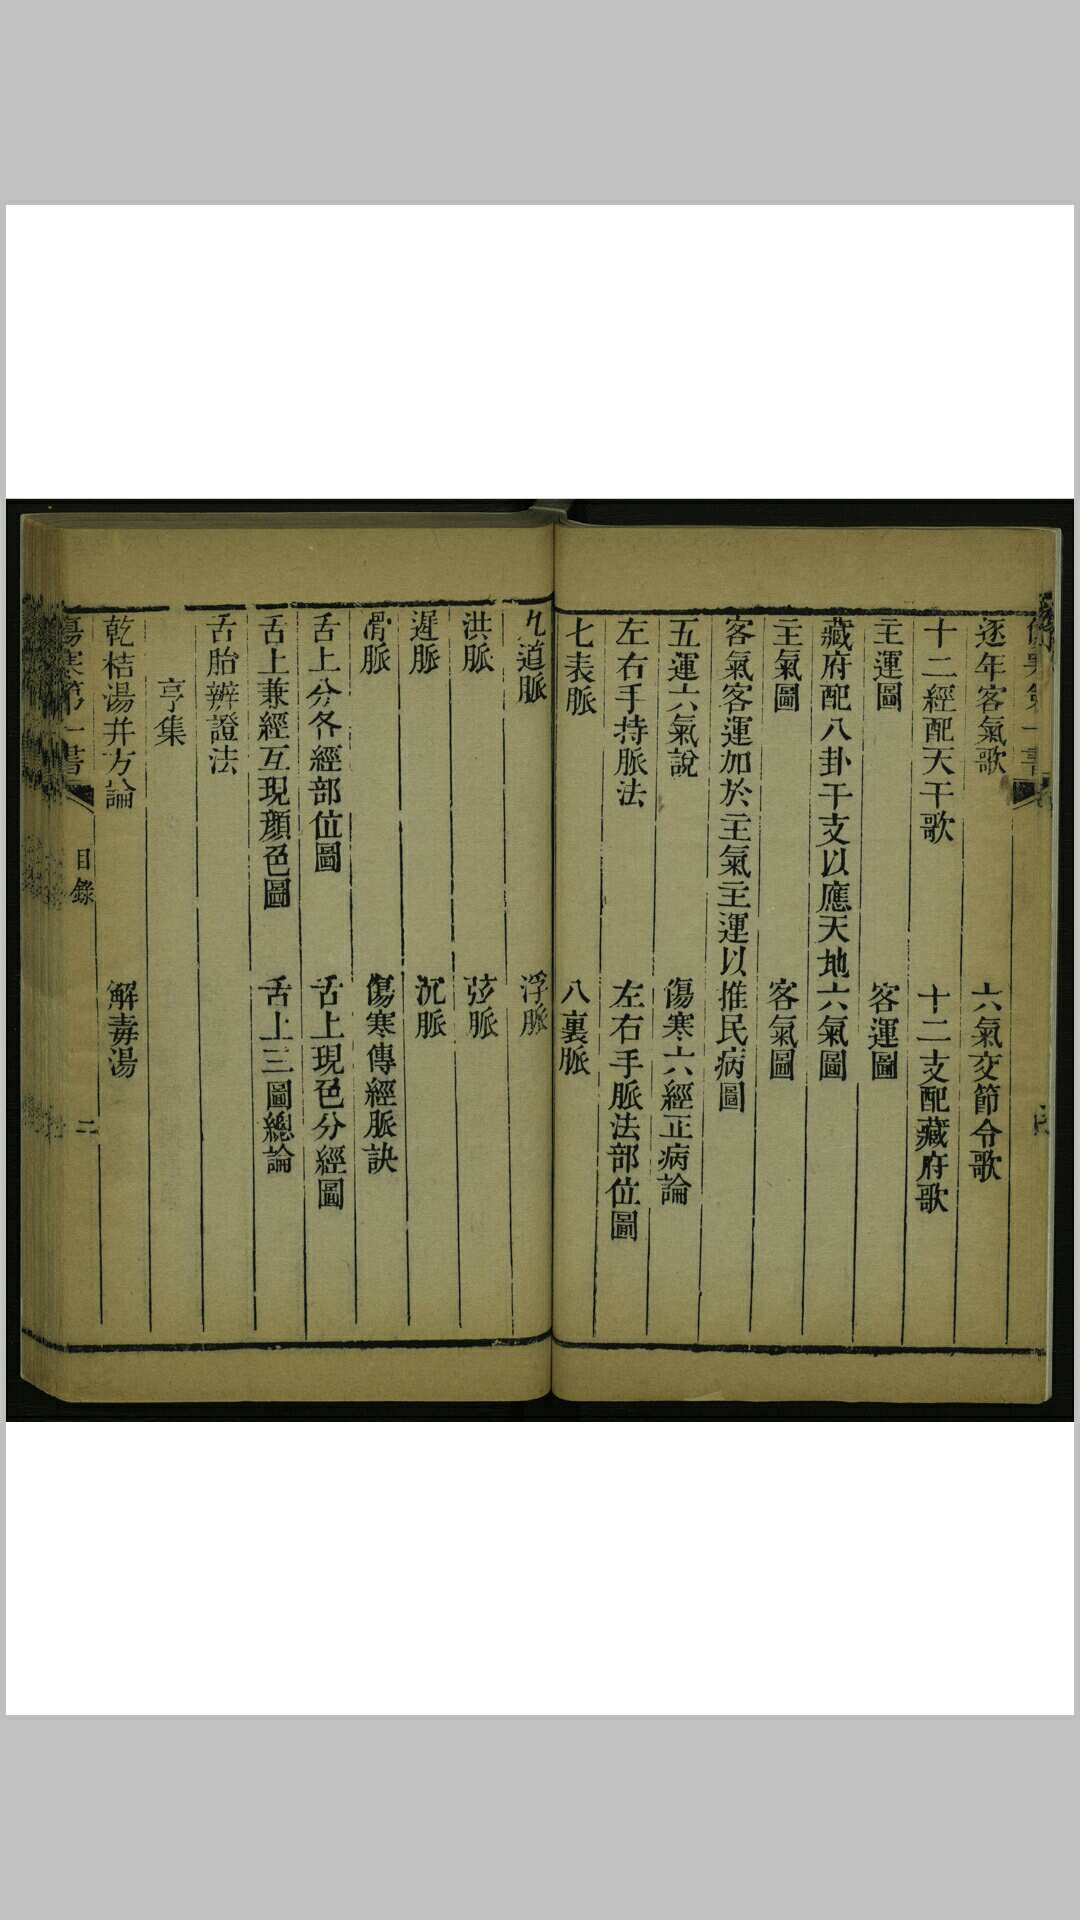 逐年客氣歌　六氣交節令歌
十二經配天干歌　十二支配藏府歌
主運圖　客運圖
藏府配八卦干支以應天地六氣圖
主氣圖　客氣圖
客氣客運加於主氣主運以推民病圖
五運六氣說　傷寒六經正病論
左右手持脈法　左右手脈法部位圖
七表脈　八裏脈
九道脈　浮脈
洪脈　弦脈
遲脈　沉脈
滑脈　傷寒傳經脈訣
舌上分各經部位圖　舌上現色分經圖
舌上兼經互現顏色圖　舌上三圖總論
舌胎辨證法
亨集
乾桔湯并方論　解毒湯
傷寒第一書　目錄　二